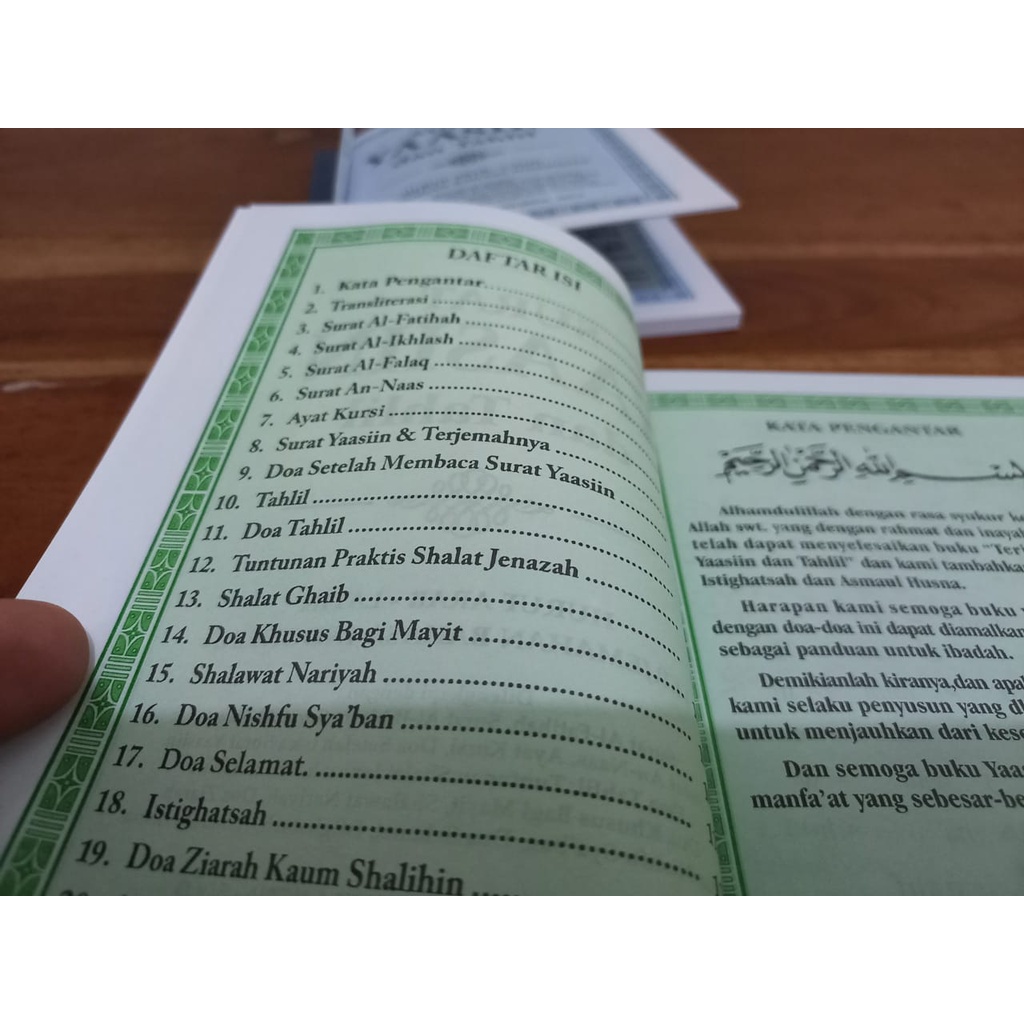 DAFTAR ISI
1. Kata Pengantar
2. Transliterasi
3. Surat Al-Fatihah
4. Surat Al-Ikhlash
5. Surat Al-Falaq
6. Surat An-Naas
7. Ayat Kursi
8. Surat Yaasiin & Terjemahnya
9. Doa Setelah Membaca Surat Yaasiin
10. Tahlil
11. Doa Tahlil
12. Tuntunan Praktis Shalat Jenazah
13. Shalat Ghaib
14. Doa Khusus Bagi Mayit
15. Shalawat Nariyah
16. Doa Nishfu Sya'ban
17. Doa Selamat.
18. Istighatsah
19. Doa Ziarah Kaum Shalihin
KATA PENGANTAR
بسم الله الرحمن الرحيم
Alhamdulillah dengan rasa syukur
Allah swt. yang dengan rahmat dan
telah dapat menyelesaikan buku
Yaasiin dan Tahlil" dan kami tambahkan
Istighatsah dan Asmaul Husna.
Harapan kami semoga buku
dengan doa-doa ini dapat diamalkan
sebagai panduan untuk ibadah.
Demikianlah kiranya,dan
kami selaku penyusun yang
untuk menjauhkan dari
Dan semoga buku
manfa'at yang